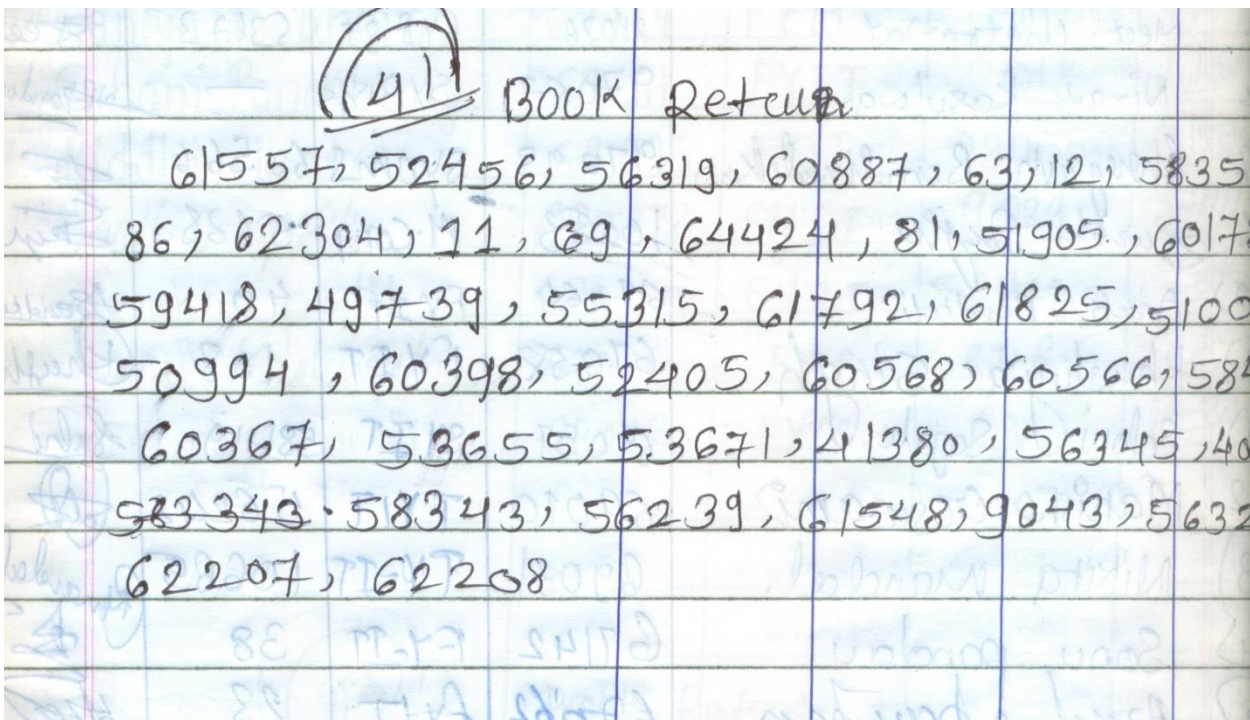 41 Book Return
61557, 52456, 56319, 60887, 63, 12, 5835
86, 62304, 11, 69, 64424, 81, 51905, 6017
59418, 49739, 55315, 61792, 61825, 5100
50994, 60398, 52405, 60568, 60566, 584
60367, 53655, 53671, 41380, 56345, 40
583343. 58343, 56239, 61548, 9043, 5632
62207, 62208